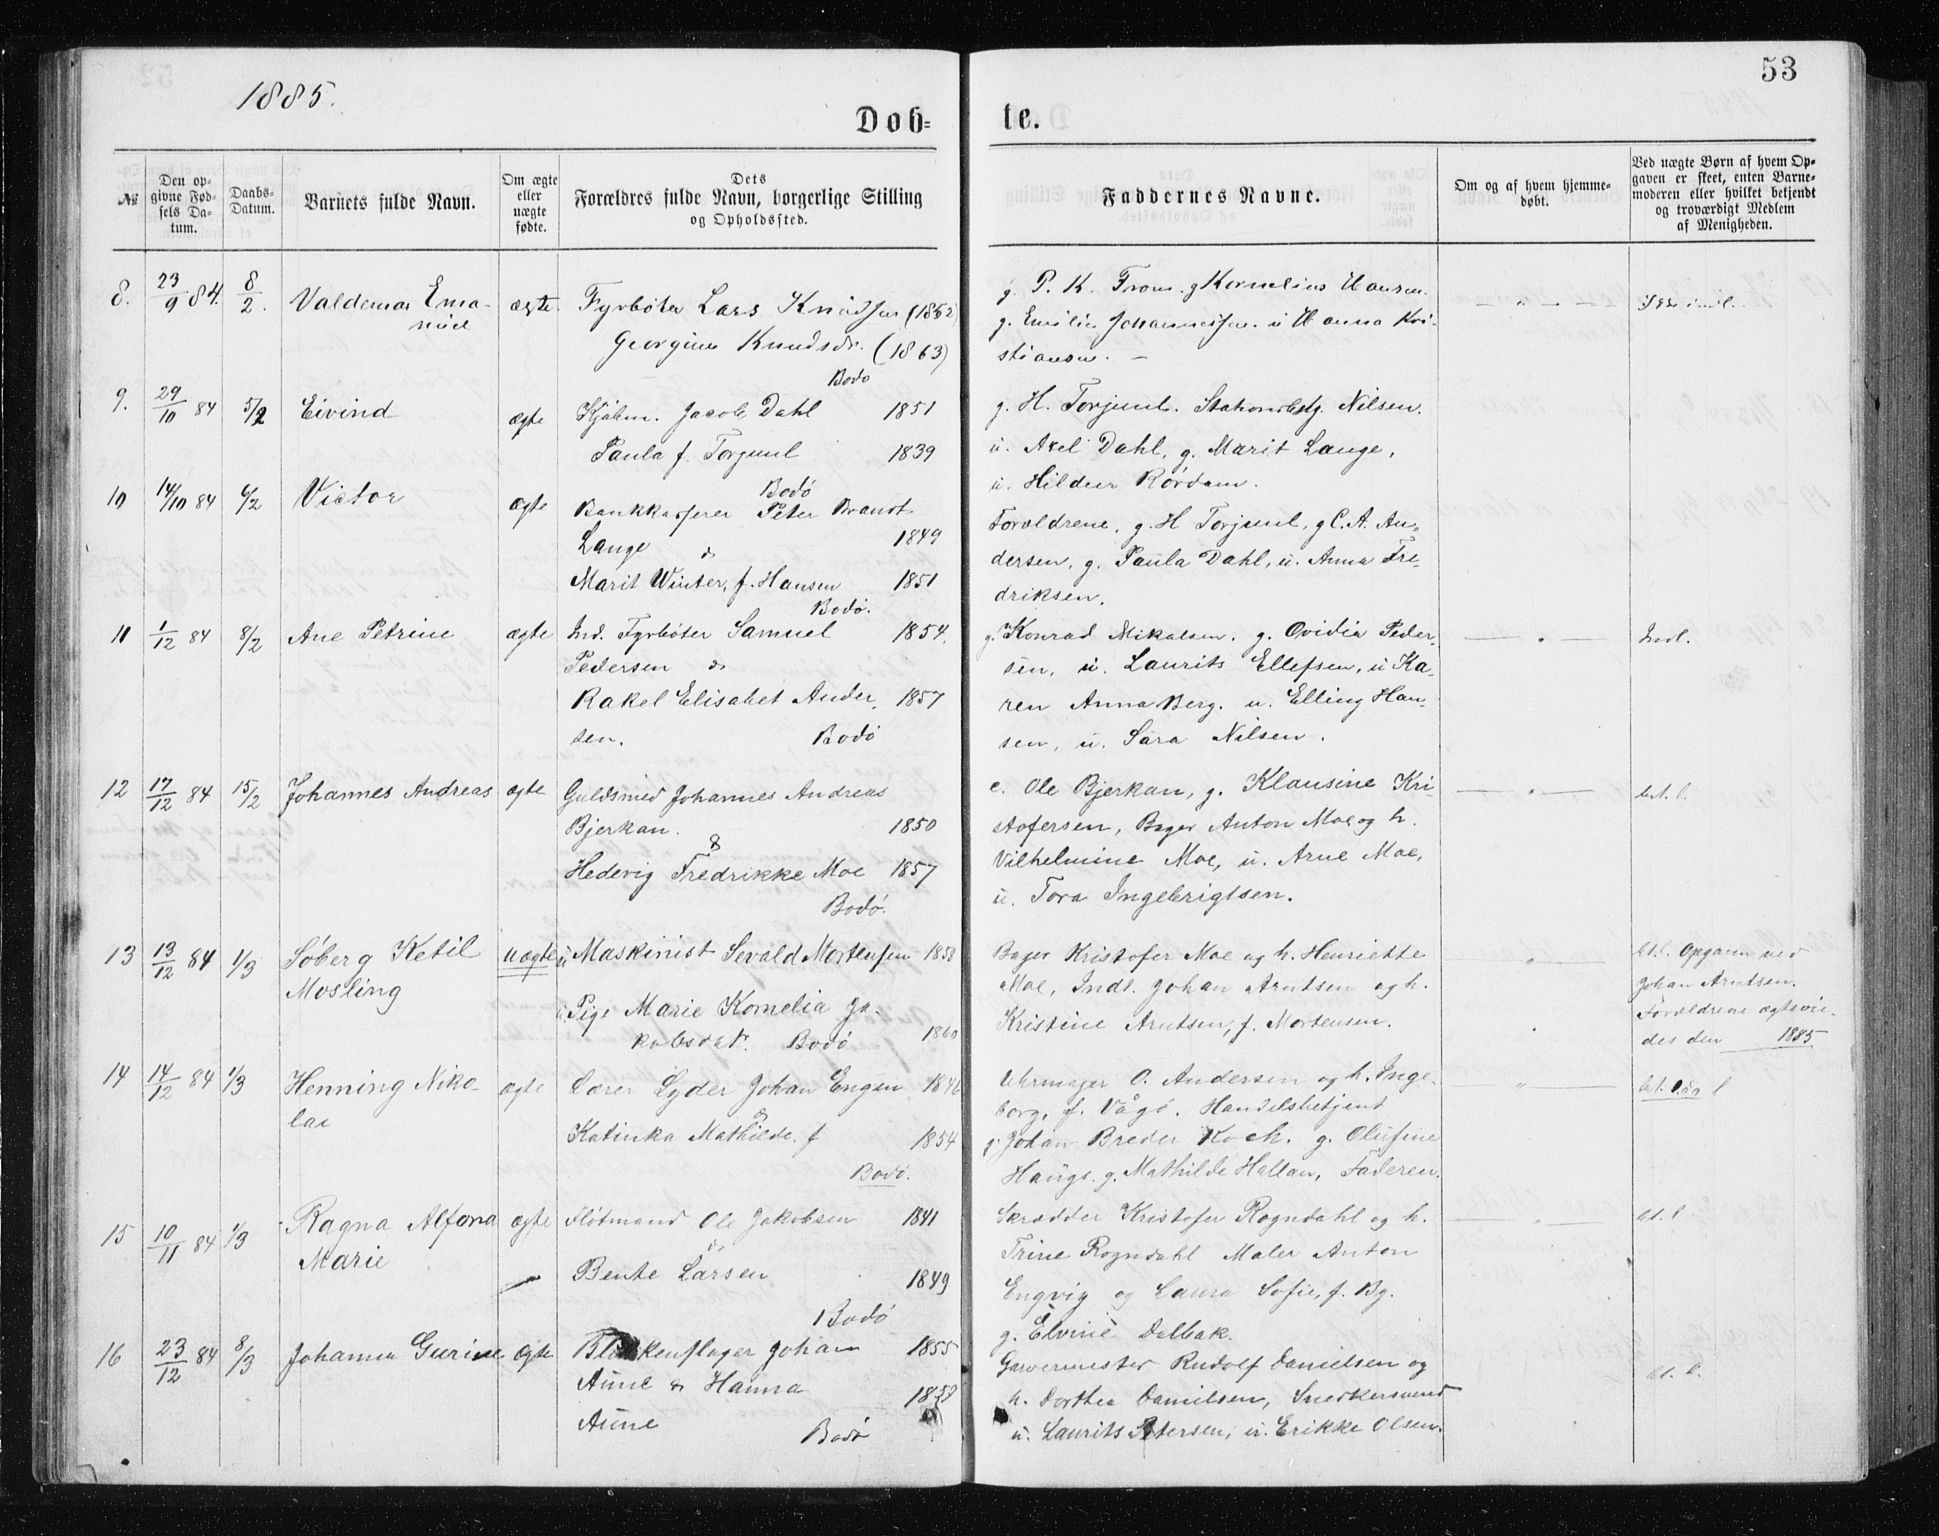 53
1885.
Døb-
te.
№
Den op-
givne Fød-
sels Da-
tum.
Daabs-
Datum.
Barnets fulde Navn.
Om ægte
eller
uægte
fødte.
Dets
Forældres fulde Navn, borgerlige Stilling
og Opholdssted.
Faddernes Navne.
Om og af hvem hjemme-
døbt.
Ved uægte Børn af hvem Op-
gaven er skeet, enten Barne-
moderen eller hvilket bekjendt
og troværdigt Medlem
af Menigheden.
8. 23/9 84. 8/2. Valdemar Ema- ægte. Fyrbøter Lars Knudsen (1852)
nuel
Georgine Knudsdr. (1863)
Bodø
g. P. K. From. g Kornelius Hansen.
g. Emilie Johannessen. u Hanna Kri-
stiansen. —
9. 29/10 84 5/2 Eivind ægte Kjøbm. Jacob Dahl 1851
Paula f. Torjuul 1839
Bodø
g. H. Torjuul. Stationsbstg. Nilsen.
u. Axel Dahl, g. Marit Lange,
u. Hildur Rørdam.
10 14/10 84 6/2 Victor ægte Bankkasserer Peter Brandt
Lange & 1849
Marit Winter, f. Hansen 1851
Bodø.
Forældrene, g. H Torjuul, g C. A. An-
dersen, g. Paula Dahl, u. Anna Fre-
driksen.
11 1/12 84 8/2 Ane Petrine ægte Ind. Fyrbøter Samuel 1854.
Pedersen &
Rakel Elisabet Ander- 1857
sen. Bodø
g. Konrad Mikalsen. g. Ovidia Peder-
sen, u. Laurits Ellefsen, u Ka-
ren Anna Berg. u. Elling Han-
sen, u. Sara Nilsen.
Indl.
12 17/12 84 15/2 Johannes Andreas ægte Guldsmed Johannes Andreas
Bjerkan. 1850
&
Hedevig Fredrikke Moe 1857
Bodø.
e. Ole Bjerkan, g. Klausine Kri-
stofersen, Bager Anton Moe og h.
Vilhelmine Moe, u. Arne Moe,
u. Tora Ingebrigtsen.
13 13/12 84 1/3 Søberg Ketil uægte u Maskinist Sevald Mortensen 1858
Mosling
u. Pige Marie Kornelia Ja-
kobsdat. Bodø 1860
Bager Kristofer Moe og h. Henriette
Moe, Indl. Johan Arntsen og h.
Kristine Arntsen, f. Mortensen.
Opgaven ved
Johan Arntsen.
Forældrene ægtevie-
des den 1885
14 14/12 84 1/3 Henning Niko- ægte Lærer Lyder Johan Engen
lai
&
Katinka Mathilde f 1854
Bodø.
Uhrmager O. Andersen og h. Inge-
borg, f. Vågø. Handelsbetjent
g. Johan Breder Koch. g. Olufine
Haugs. g. Mathilde Hallan, Faderen.
15 10/11 84 1/3 Ragna Alfona ægte Fløtmand Ole Jakobsen 1841
Marie
&
Bente Larsen 1849
Bodø
Skrædder Kristofer Rogndahl og h.
Trine Rogndahl Maler Anton
Engvig og Laura Sofie, f. Bg.
g. Elvine Dalbak.
16 23/12 84 8/3 Johanna Gurine ægte Blikkenslager Johan 1855
Aune & Hanna
Aune
Bodø
Garvermester Rudolf Danielsen og
h. Dorthea Danielsen, Snedkersvend
u. Laurits Petersen, u. Erikke Olsen.